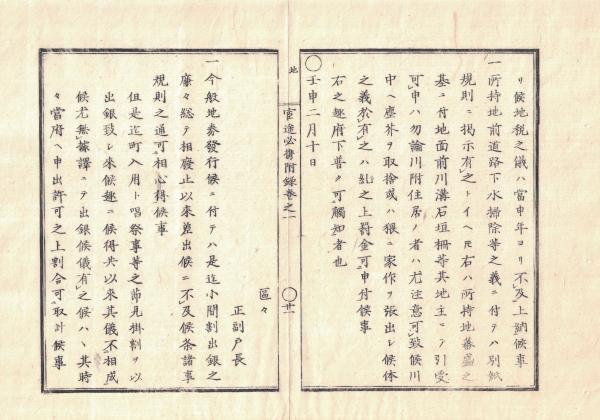 リ候地税之儀ハ當申年ヨリ不及上納候事
一所持地前道路下水掃除等之義ニ付テハ別紙
規則ニ掲示有之トイヘトモ右ハ所持地券盛之
基ニ付地面前川溝石垣柵等其地主ニテ引受
可申ハ勿論川附住居ノ者ハ尤注意可致候川
中ヘ塵芥ヲ取捨或ハ猥ニ家作ヲ張出シ候体
之義於有之ハ糺之上罰金可申付候事
右之趣府下普ク可觸知者也
〇壬申二月十日
地
官途必携附録巻之一
〇廿一
區々
正副戸長
一今般地券發行候ニ付テハ是迄小間割出銀之
廉々總テ相廢止以来差出候ニ不及候条諸事
規則之通可相心得候事
但是迄町入用ト唱祭事等之節見掛割ヲ以
出銀致シ来候趣ニ候得共以来其儀不相成
候尤無據譯ニテ出銀候儀有之候ハヽ其時
々當府ヘ申出許可之上割合可取計候事